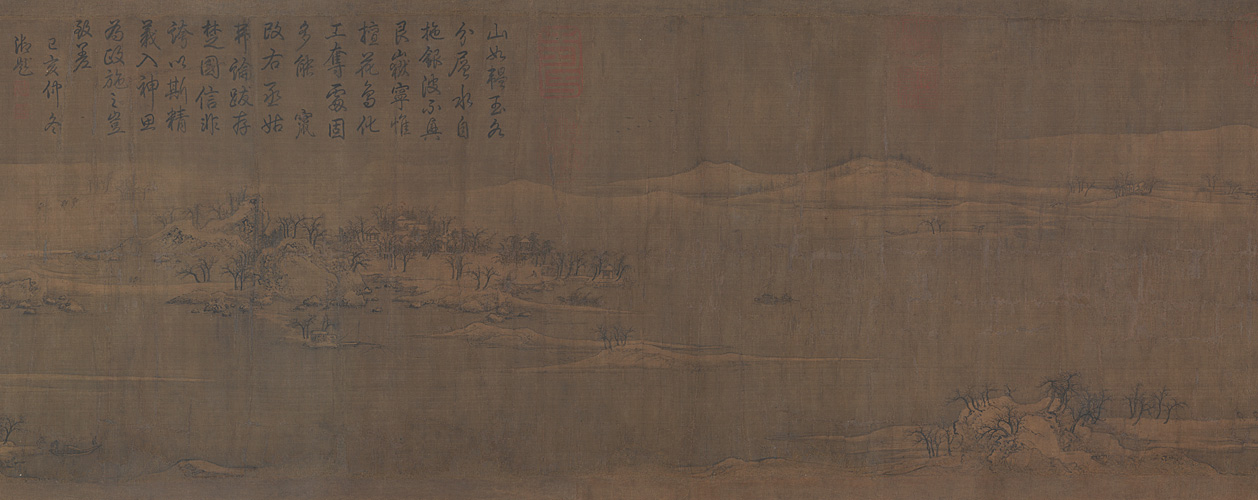 山如韞玉各
分層水自
拖銀波不興
艮嶽寧惟
擅花鳥化
工奪處固
多能
右丞姑
論跋存
楚國信非
誇以斯精
義入神思
為政施之豈
致差
己亥仲冬
御題